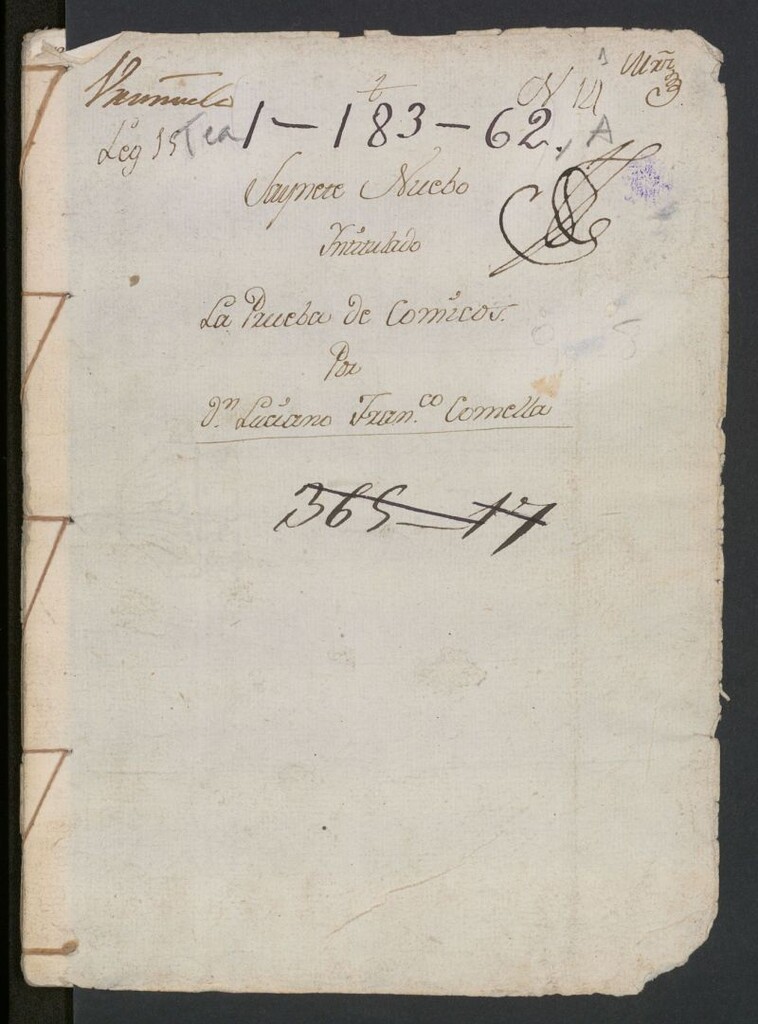 N 14
Leg 15 Tea 1-183-62, A
Saynete Nuebo
Intitulado
La Prueba de Comicos.
Por
Dn. Luciano Fran.co Comella
365-17